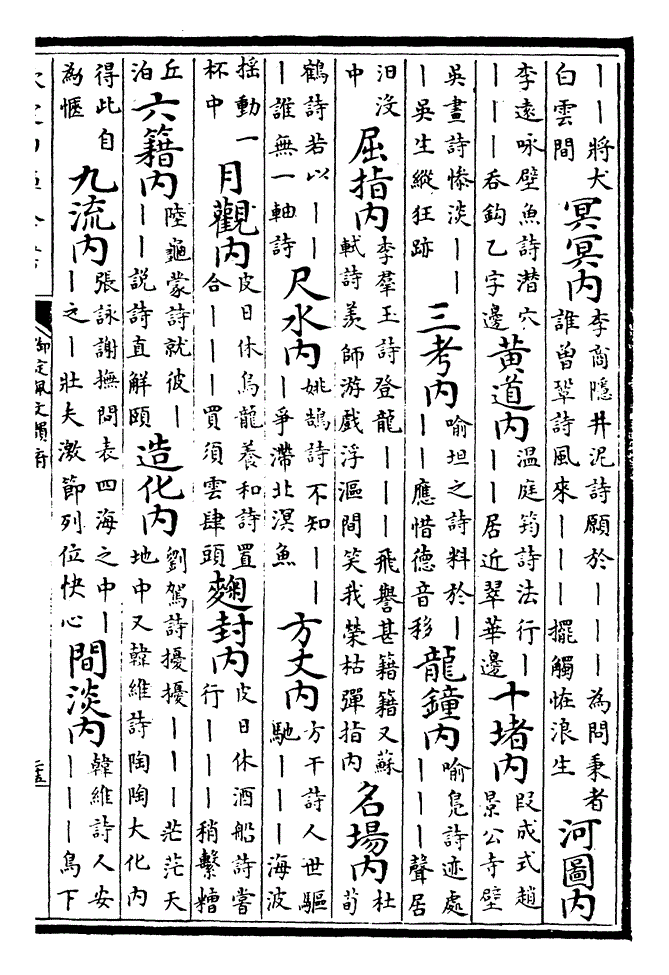 丨丨將犬白雲間 冥冥内 李商隱井泥詩願於丨丨丨為問秉者誰曾鞏詩風來丨丨丨擺觸恠浪生 河圖内
李遠咏壁魚詩潛穴丨丨丨吞鈎乙字邊 黄道内 温庭筠詩法行丨丨丨居近翠華邊 十堵内 段成式趙景公寺壁
吳畫詩慘淡丨丨丨吳生縱狂跡 三考内 喻坦之詩料於丨丨丨應惜德音移 龍鐘内 喻鳧詩迹處丨丨丨聲居
汨没中 屈指内 李羣玉詩登龍丨丨丨飛譽甚籍籍又蘇軾詩羡師游戲浮漚間笑我榮枯彈指内 名場内 杜荀
鶴詩若以丨丨丨誰無一軸詩 尺水内 姚鵠詩不知丨丨丨爭滯北溟魚 方丈内 方干詩人世驅馳丨丨丨海波
揺動一杯中 月觀内 皮日休烏龍養和詩置合丨丨丨買須雲肆頭 麴封内 皮日休酒船詩嘗行丨丨丨稍繫糟
丘泊 六籍内 陸龜蒙詩就彼丨丨丨説詩直解頤 造化内 劉駕詩擾擾丨丨丨茫茫天地中又韓維詩陶陶大化内
得此自為愜 九流内 張詠謝撫問表四海之中丨丨之丨壯夫激節列位快心 間淡内 韓維詩人安丨丨丨鳥下
御定佩文韻府